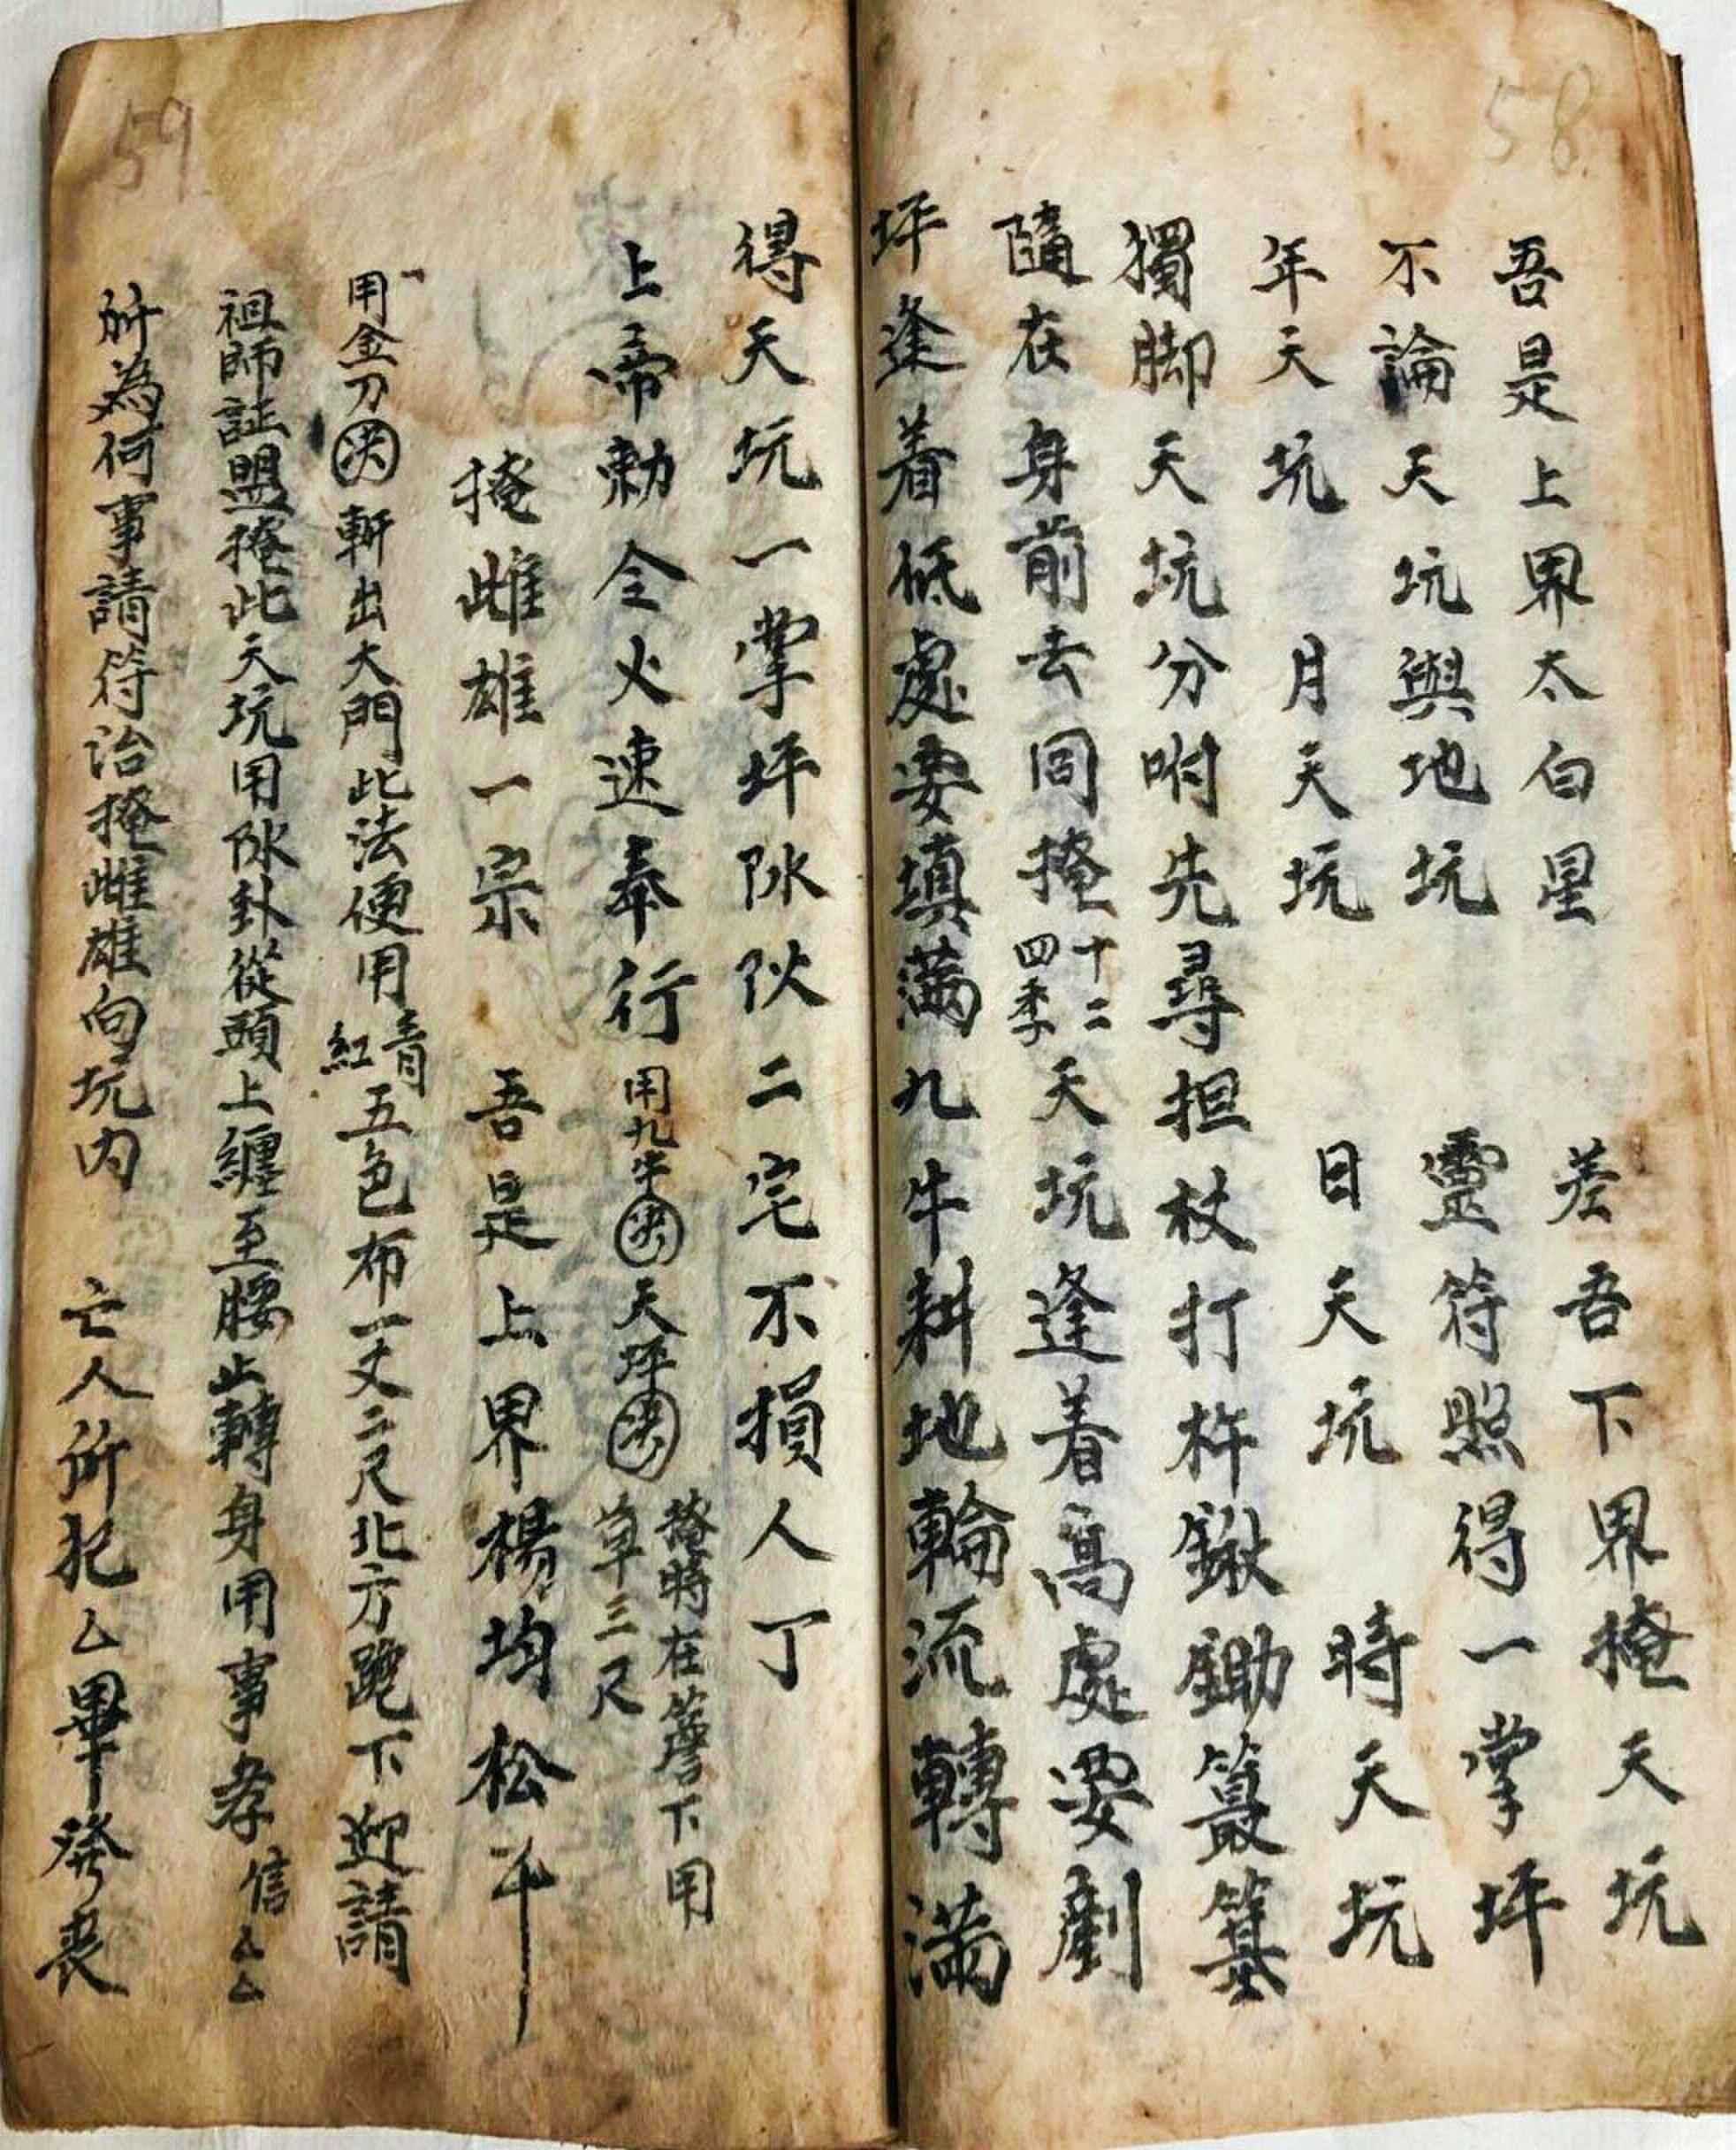 58
吾是上界太白星　差吾下界掩天坑
不論天坑與地坑　靈符照得一掌坪
年天坑　月天坑　日天坑　時天坑
獨脚天坑分咐先尋担杖打杵鍬鋤簑箕
隨在身前去同掩十二四季天坑逢着高處要剷
坪逢着低處要填滿九牛耕地輪流轉滿
59
得天坑一掌坪陰伙二宅不損人丁
上帝勅令火速奉行 用九牛 天坪 掩時在簷下用草三尺
掩雌雄一宗　吾是上界楊均松
用金刀 斬出大門此法便用青紅五色布一丈二尺北方跪下迎請
祖師証盟掩此天坑用陰卦從頭上纏至腰止轉身用事孝信厶厶
所為何事請符治掩雌雄向坑内　亡人所犯厶畢發喪